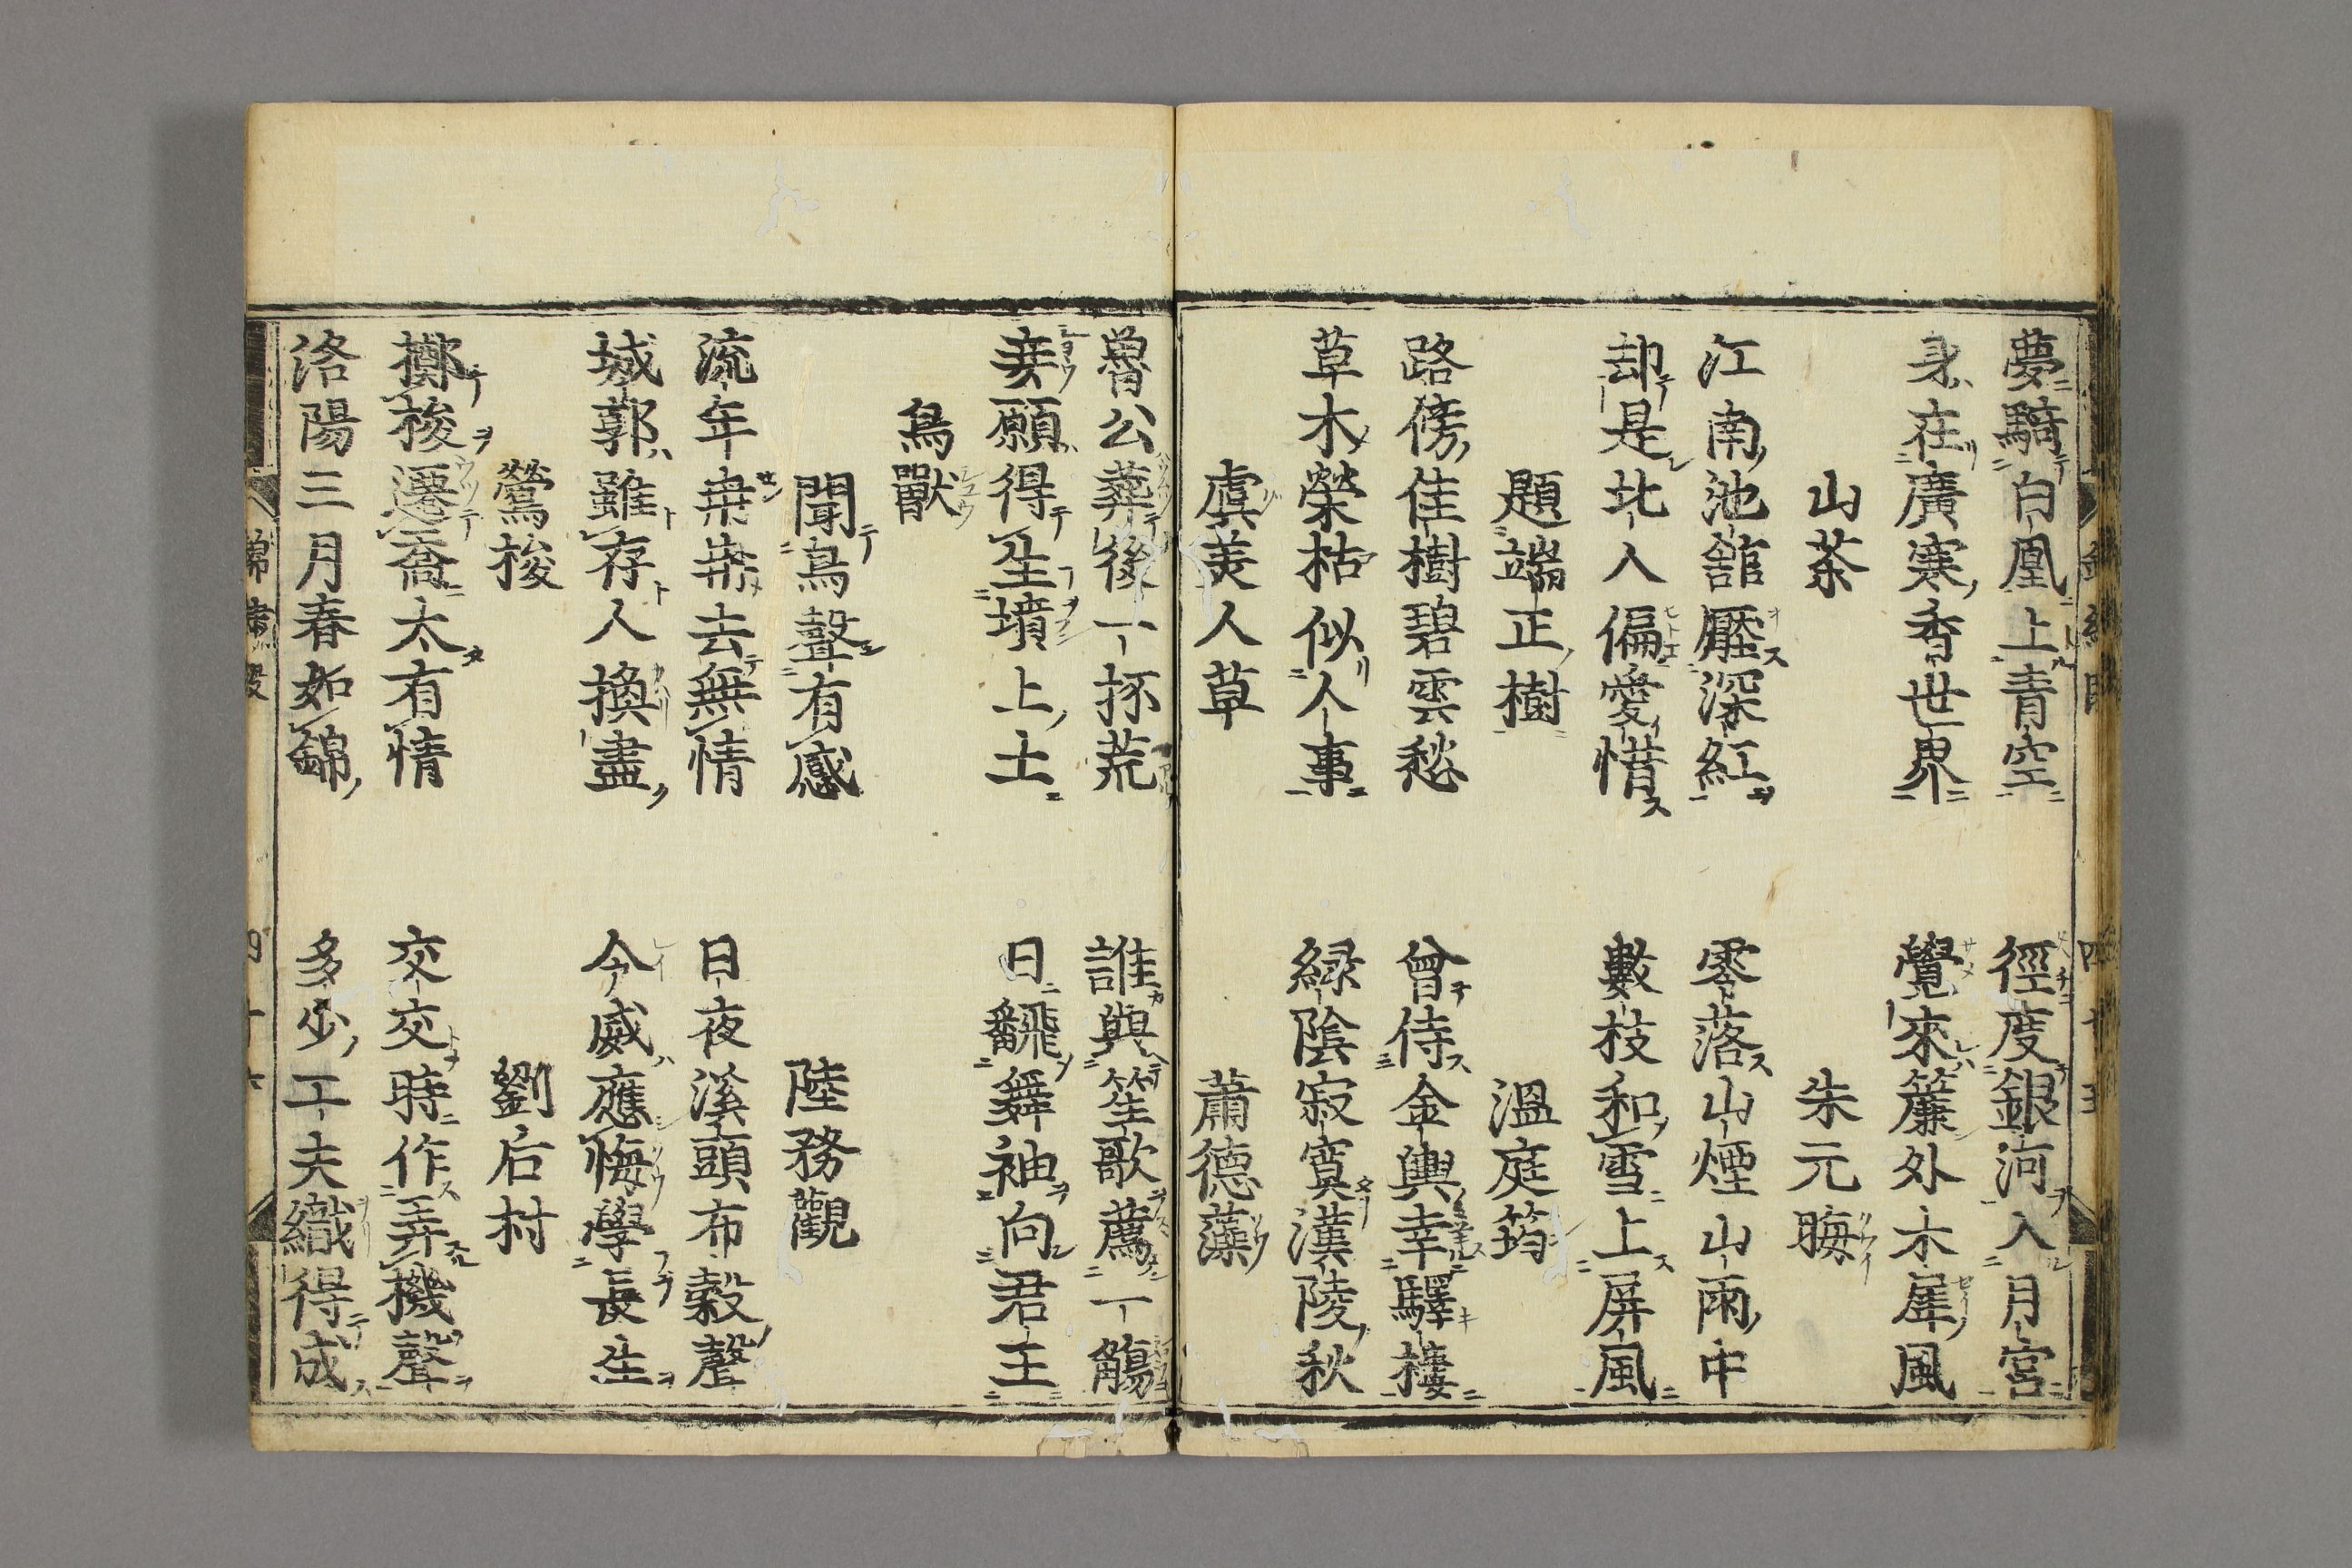 夢騎白凰上青空　徑度銀河入月宮
身在廣寒香世界　覺來簾外木犀風
山茶　朱元晦
江南池舘壓深紅　零落山煙山雨中
却是北人偏愛惜　數枝和雪上屏風
題端正樹　溫庭筠
路傍佳樹碧雲愁　曾侍金輿幸驛樓
草木榮枯似人事　緑陰寂寞漢陵秋
虞美人草　蕭德藻
魯公葬後一抔荒　誰與笙歌薦一觴
妾願得生墳上土　日飜舞袖向君王
鳥獸
聞鳥聲有感　陸務觀
流年冉冉去無情　日夜溪頭布穀聲
城郭雖存人換盡　令威應悔學長生
鶯梭　劉后村
擲梭遷喬太有情　交交時作弄機聲
洛陽三月春如錦　多少工夫織得成